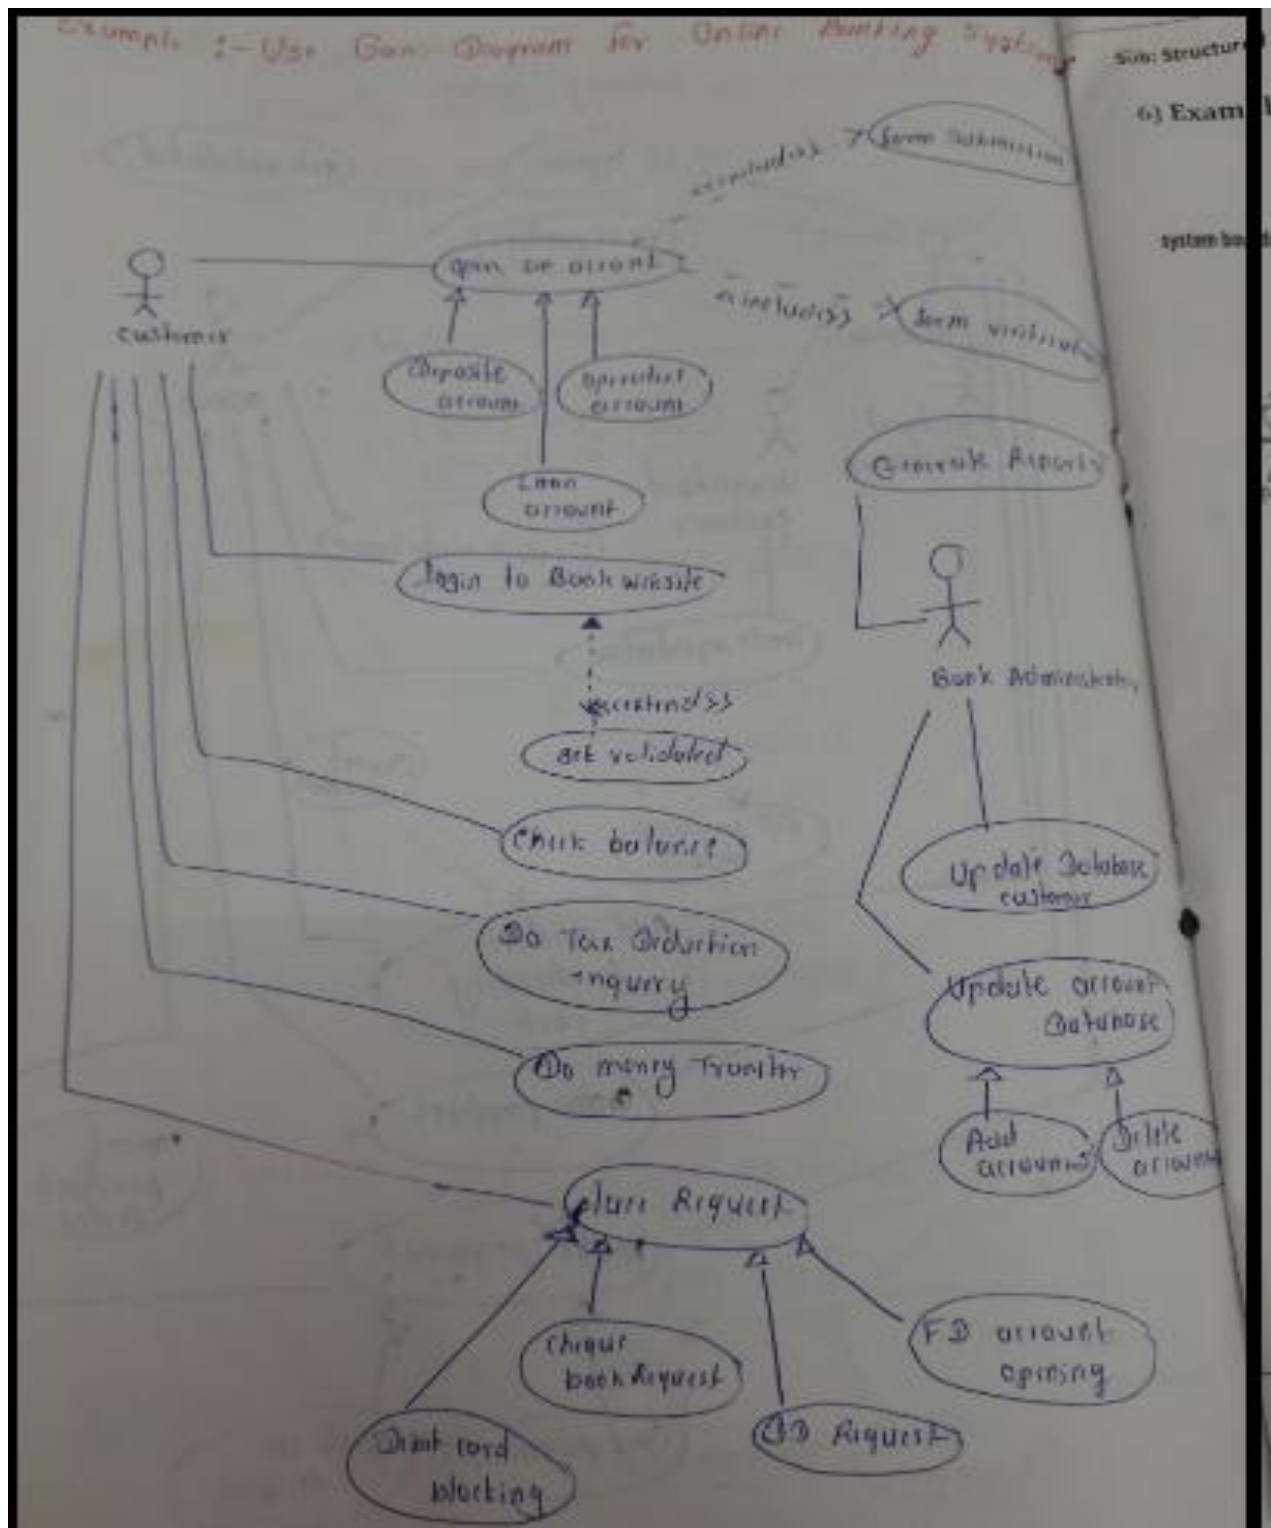 Example :- Use Case Diagram for Online Banking System
Sub: Structured
6) Exam
system bound
form submission
<<includes>>
open an account
<<includes>>
form verification
customer
Deposite
account
account
Loan
account
Generate Reports
login to Bank website
Bank Administrator
<<extend>>
Get validated
Check balance
Update Database
customer
Do Tax Deduction
inquiry
Update account
Database
Do money Transfer
Add
accounts
Delete
account
place Request
cheque
book Request
FD account
opening
DD Request
Debit card
blocking